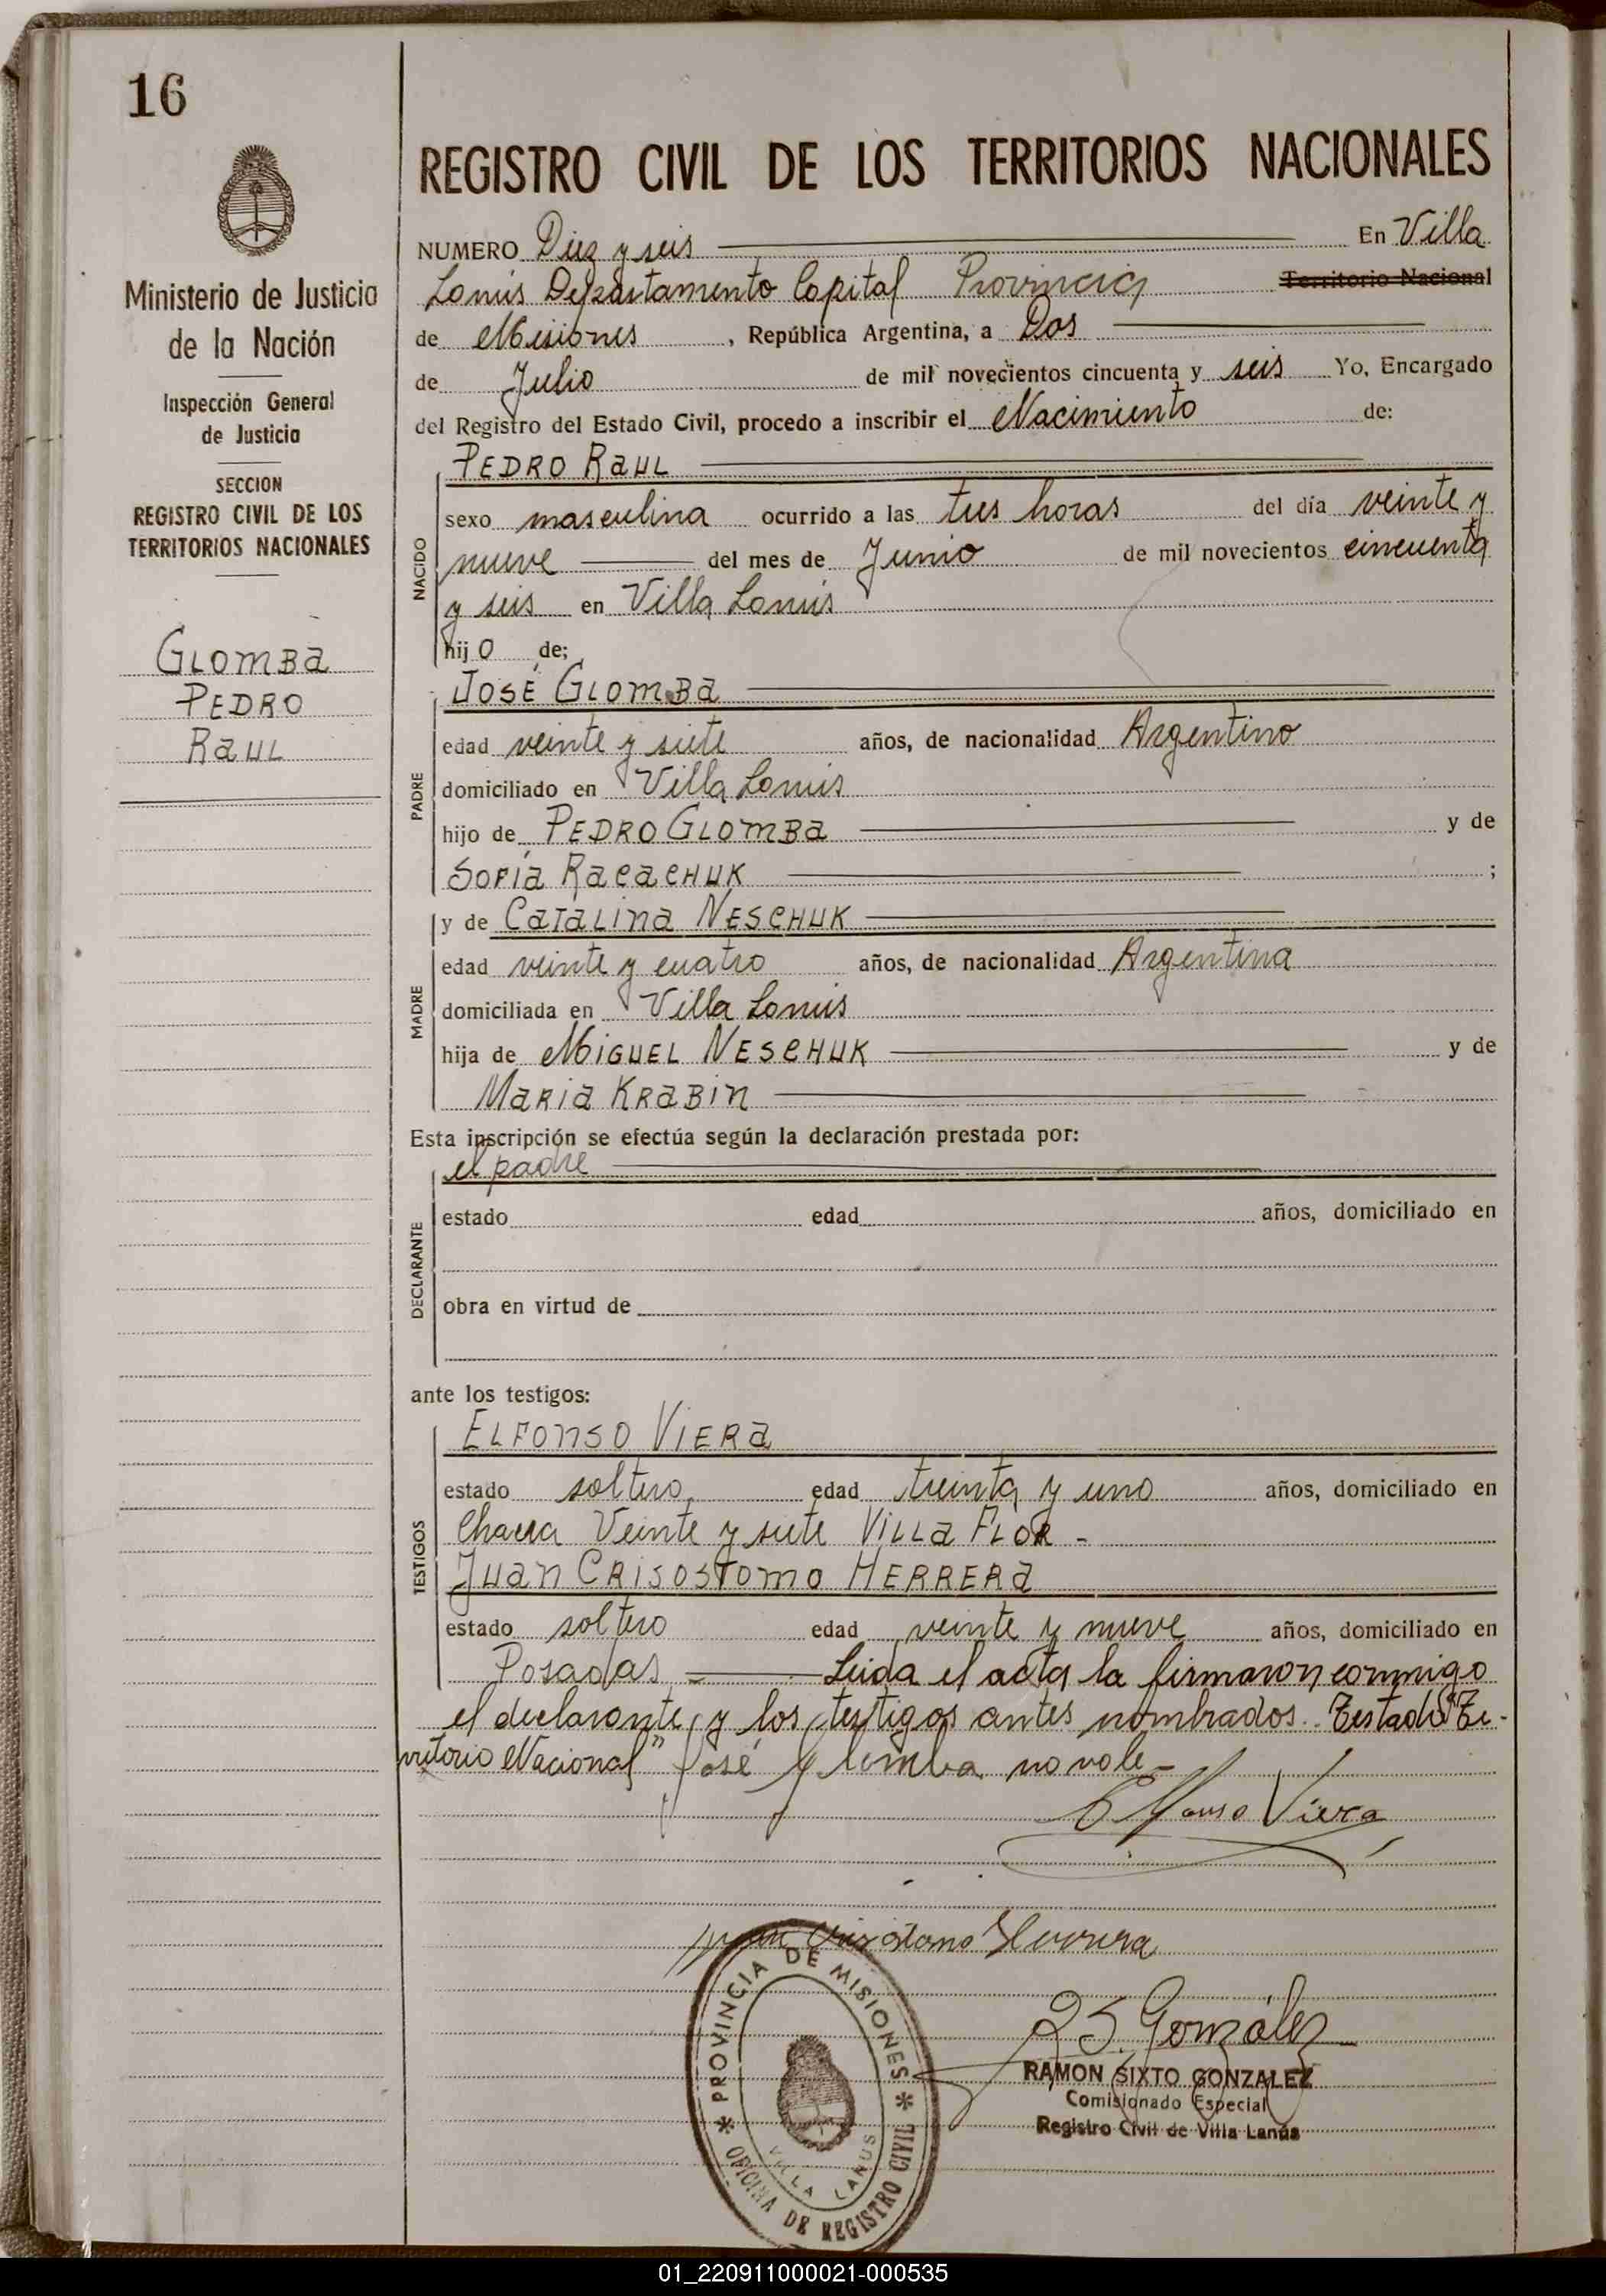 16
Ministerio de Justicia
de la Nación
Inspección General
de Justicia
SECCION
REGISTRO CIVIL DE LOS
TERRITORIOS NACIONALES
GLOMBA
PEDRO
RAUL
REGISTRO CIVIL DE LOS TERRITORIOS NACIONALES
NUMERO Diez y seis En Villa
Lanús Departamento Capital Provincia Territorio Nacional
de Misiones, República Argentina, a Dos
de Julio de mil novecientos cincuenta y seis Yo, Encargado
del Registro del Estado Civil, procedo a inscribir el Nacimiento de:
NACIDO
PEDRO RAUL
sexo masculina ocurrido a las tres horas del día veinte y
nueve del mes de Junio de mil novecientos cincuenta
y seis en Villa Lanús
hijo de;
PADRE
JOSÉ GLOMBA
edad veinte y siete años, de nacionalidad Argentino
domiciliado en Villa Lanús
hijo de PEDRO GLOMBA y de
SOFÍA RACACHUK ;
MADRE
y de CATALINA NESCHUK
edad veinte y cuatro años, de nacionalidad Argentina
domiciliada en Villa Lanús
hija de MIGUEL NESCHUK y de
MARIA KRABIN
Esta inscripción se efectúa según la declaración prestada por:
DECLARANTE
el padre
estado edad años, domiciliado en
obra en virtud de
ante los testigos:
TESTIGOS
ELFONSO VIERA
estado soltero edad treinta y uno años, domiciliado en
Chacra Veinte y siete VILLA FLOR -
JUAN CRISOSTOMO HERRERA
estado soltero edad veinte y nueve años, domiciliado en
Posadas = Leida el acta la firmaron conmigo
el declarante y los testigos antes nombrados. Testado "Te-
rritorio Nacional" José Glomba no vale-
Elfonso Viera
Juan Crisostomo Herrera
R S. González
RAMON SIXTO GONZALEZ
Comisionado Especial
Registro Civil de Villa Lanús
* PROVINCIA DE MISIONES *
OFICINA DE REGISTRO CIVIL
VILLA LANUS
01_220911000021-000535